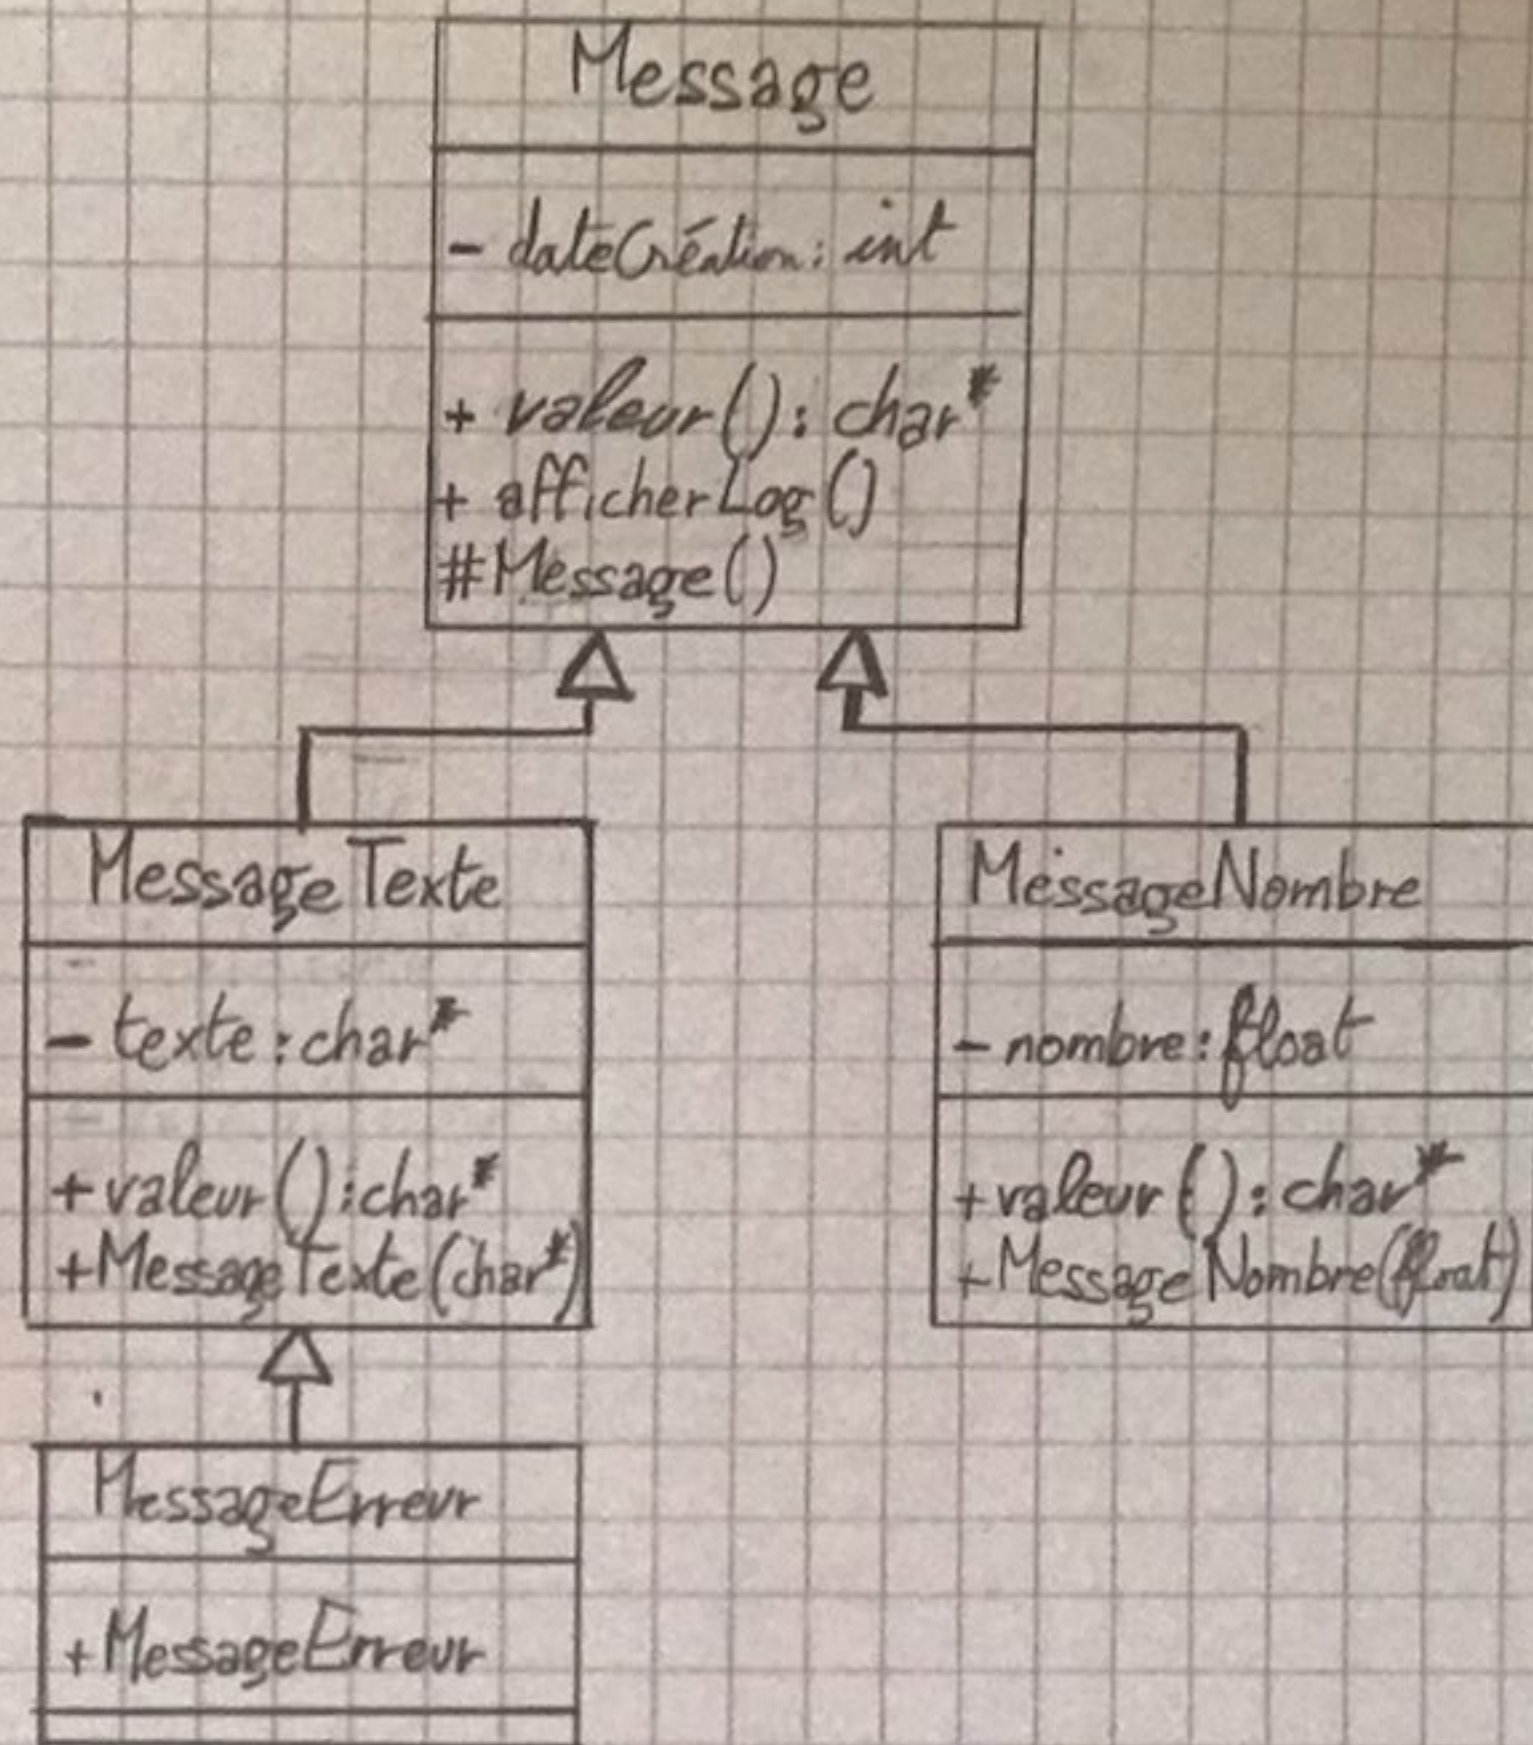 Message
- dateCréation: int
+ valeur(): char*
+ afficherLog()
#Message()
MessageTexte
- texte: char*
+valeur(): char*
+MessageTexte(char*)
MessageNombre
- nombre: float
+valeur(): char*
+MessageNombre(float)
MessageErreur
+MessageErreur